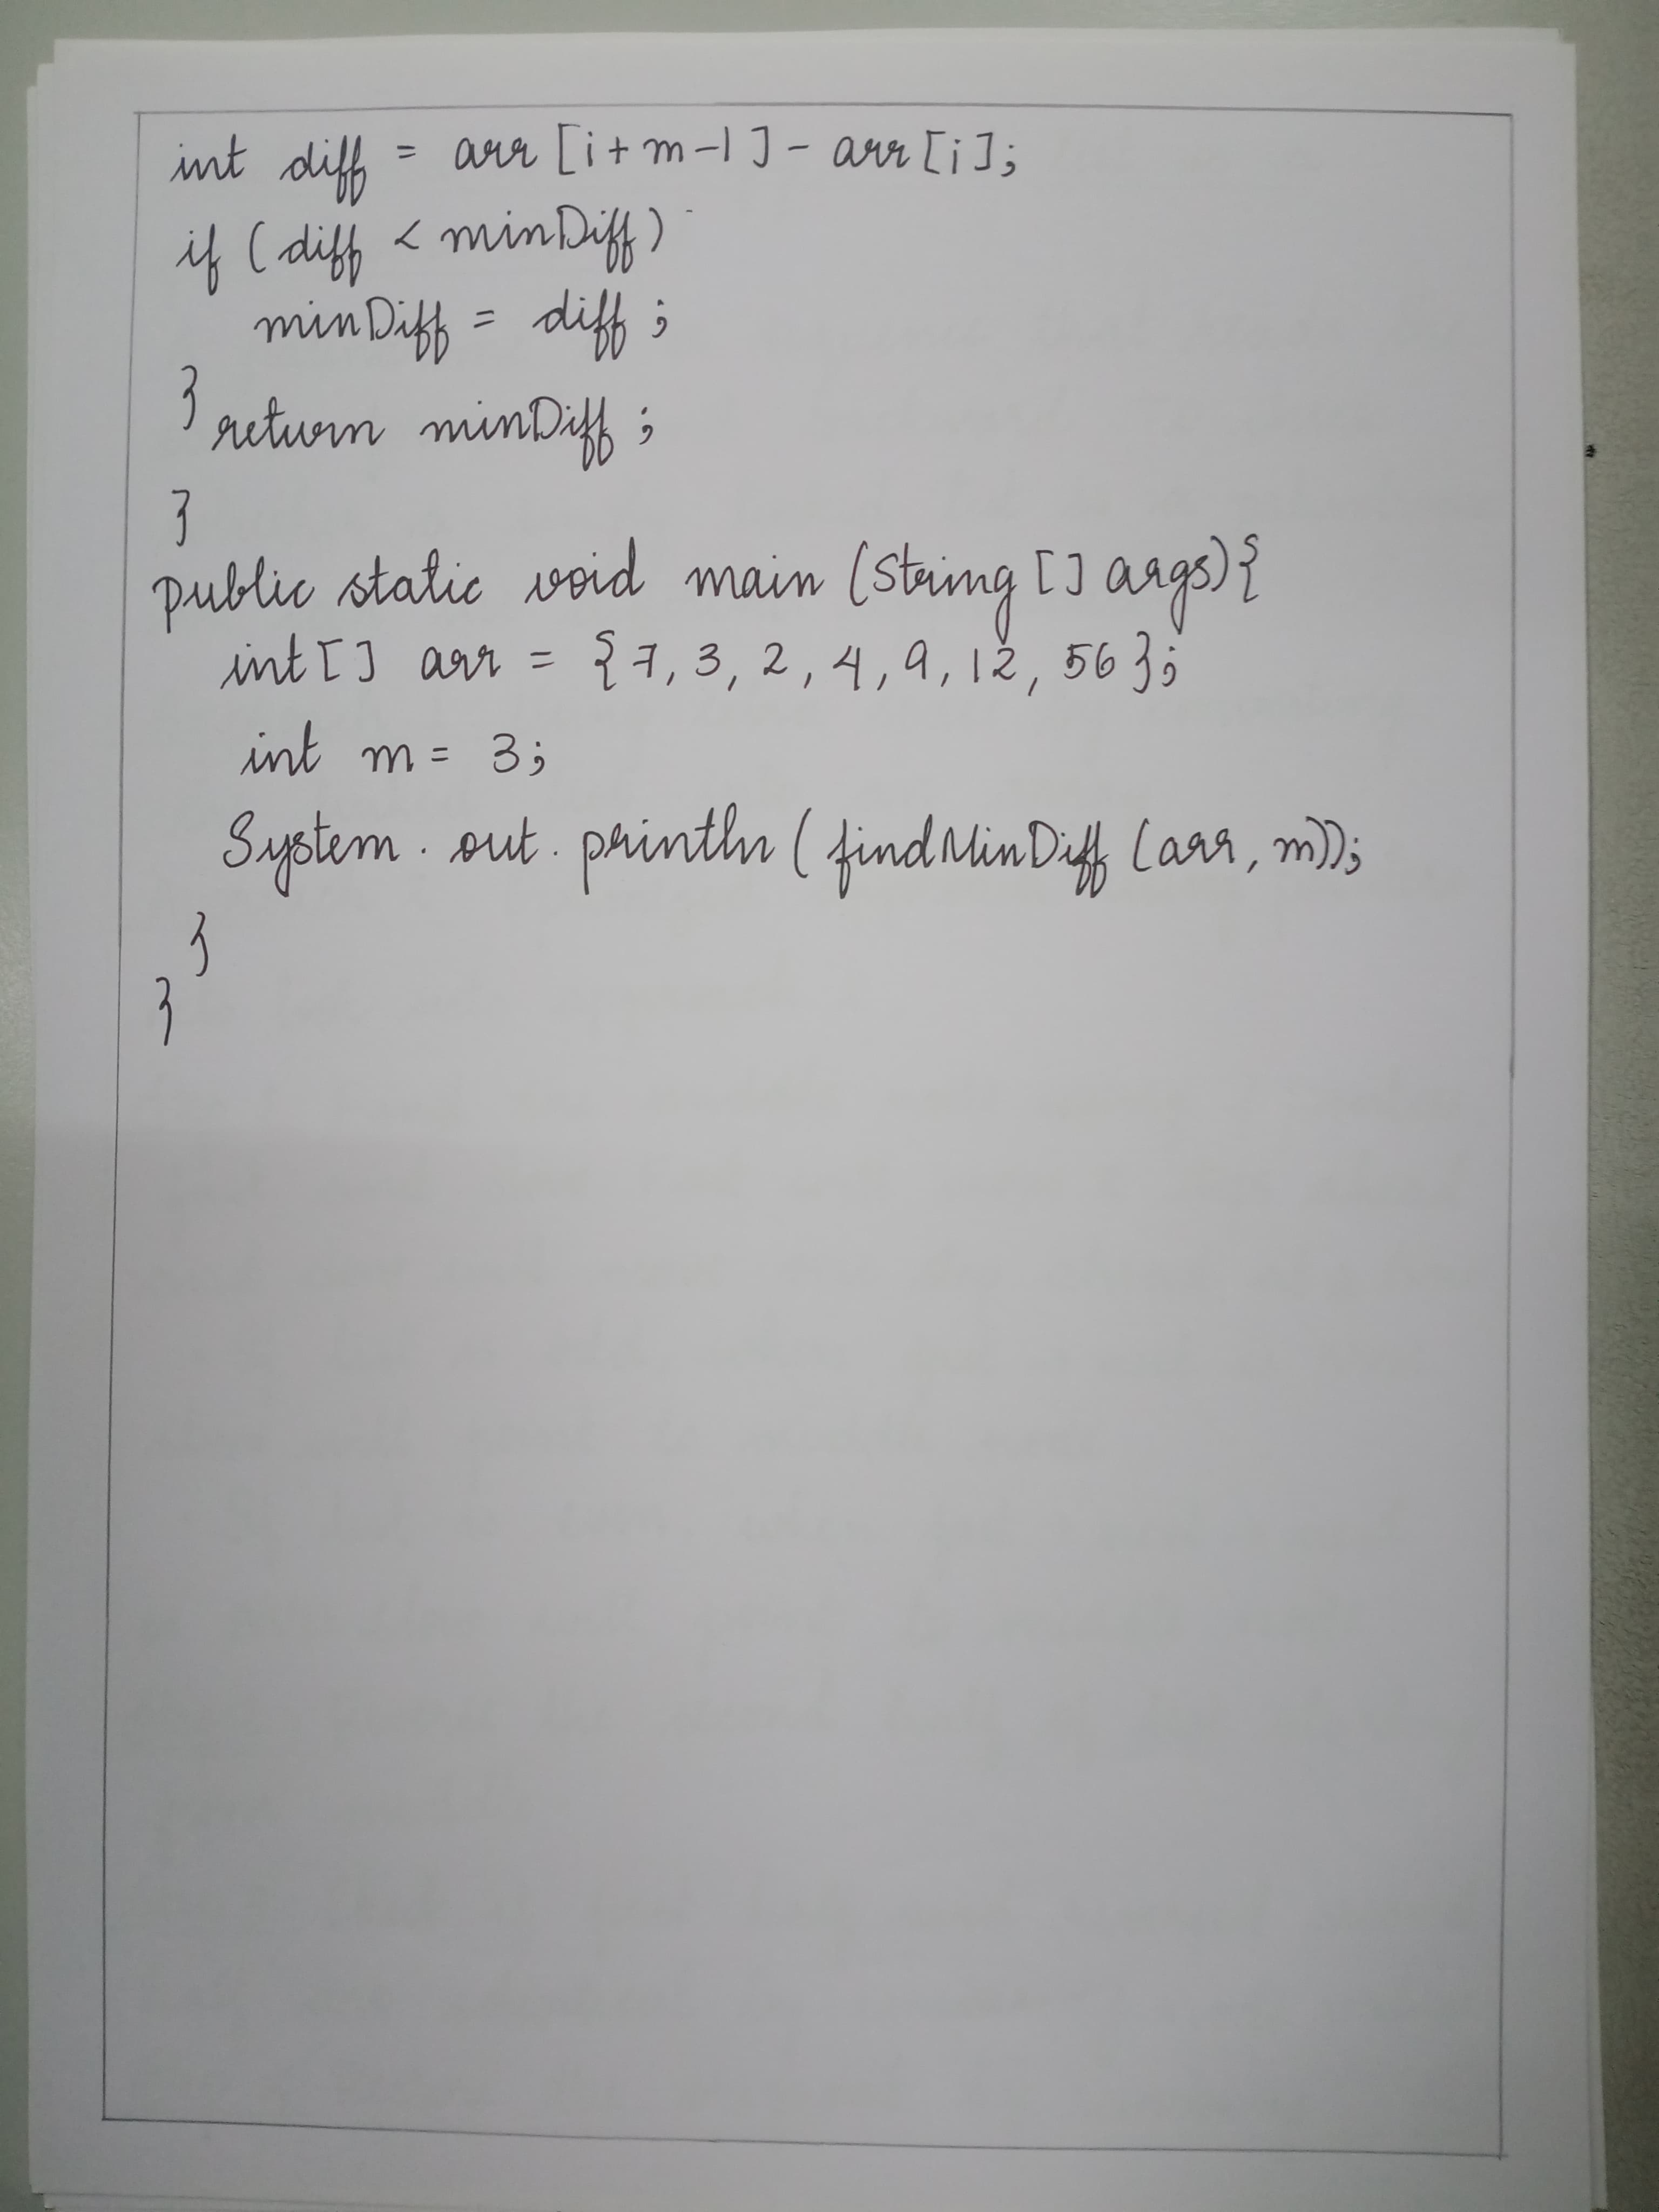 int diff = arr[i+m-1] - arr[i];
if (diff < minDiff)
minDiff = diff;
} return minDiff;
}
public static void main (String [] args){
int[] arr = {7, 3, 2, 4, 9, 12, 56};
int m = 3;
System.out.println (findMinDiff (arr, m));
}
}